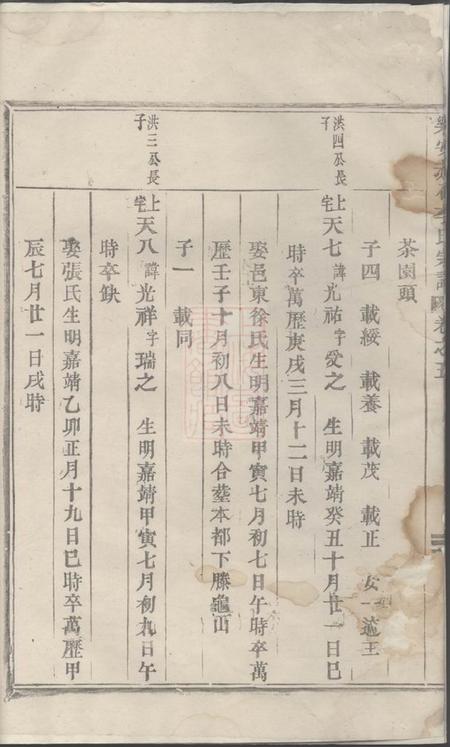 氏宗譜 卷之五
茶園頭
子四 載綏 載養 載茂 載正 女一 適王
洪四公長子
上宅 天七 諱光祐 字愛之 生明嘉靖癸丑十月廿一日巳
時卒萬歷庚戌三月十二日未時
娶邑東徐氏生明嘉靖甲寅七月初七日午時卒萬
歷壬子十月初八日未時合塟本都下塍龜山
子一 載同
洪三公長子
上宅 天八 諱光祥 字瑞之 生明嘉靖甲寅七月初九日午
時卒缺
娶張氏生明嘉靖乙卯正月十九日巳時卒萬歷甲
辰七月廿一日戌時